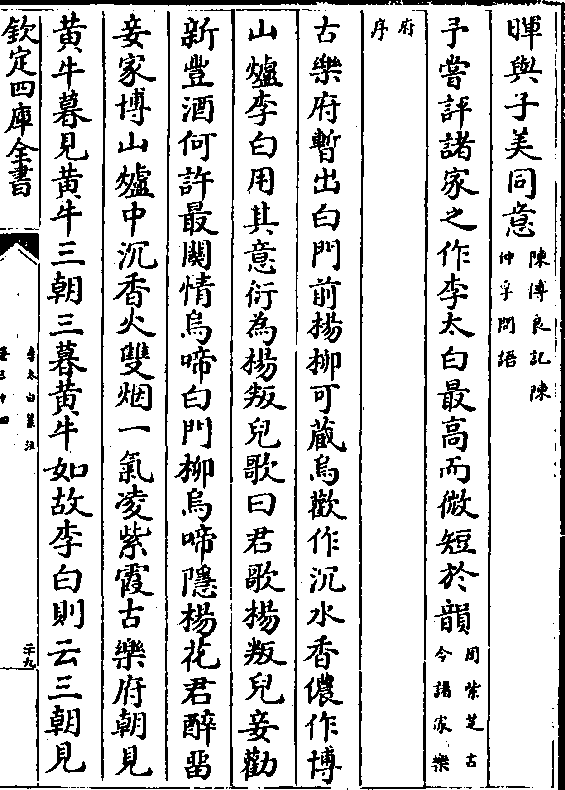 暉與子美同意陳傅良記陳仲孚問語
予嘗評諸家之作李太白最髙而微短於韻周紫芝古今諸家樂
府序
古樂府暫出白門前楊栁可藏烏歡作沉水香儂作博
山爐李白用其意衍為楊叛兒歌曰君歌楊叛兒妾勸
新豐酒何許最闗情烏啼白門栁烏啼隱楊花君醉留
妾家博山爐中沉香火雙烟一氣凌紫霞古樂府朝見
黄牛暮見黄牛三朝三暮黄牛如故李白則云三朝見
欽定四庫全書
李太白集注
卷三十四
二十九